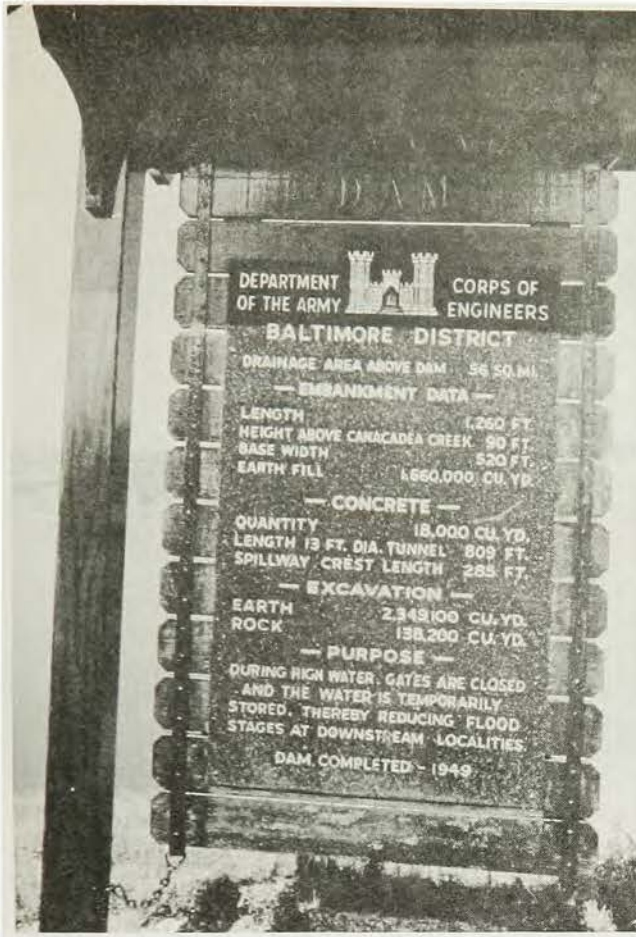 DAM
DEPARTMENT OF THE ARMY
CORPS OF ENGINEERS
BALTIMORE DISTRICT
DRAINAGE AREA ABOVE DAM 56 SQ. MI.
— EMBANKMENT DATA —
LENGTH 1,260 FT.
HEIGHT ABOVE CANACADEA CREEK 90 FT.
BASE WIDTH 520 FT.
EARTH FILL 1,660,000 CU. YD.
— CONCRETE —
QUANTITY 18,000 CU. YD.
LENGTH 13 FT. DIA. TUNNEL 809 FT.
SPILLWAY CREST LENGTH 285 FT.
— EXCAVATION —
EARTH 2,349,100 CU. YD.
ROCK 138,200 CU. YD.
— PURPOSE —
DURING HIGH WATER, GATES ARE CLOSED
AND THE WATER IS TEMPORARILY
STORED, THEREBY REDUCING FLOOD
STAGES AT DOWNSTREAM LOCALITIES.
DAM COMPLETED - 1949